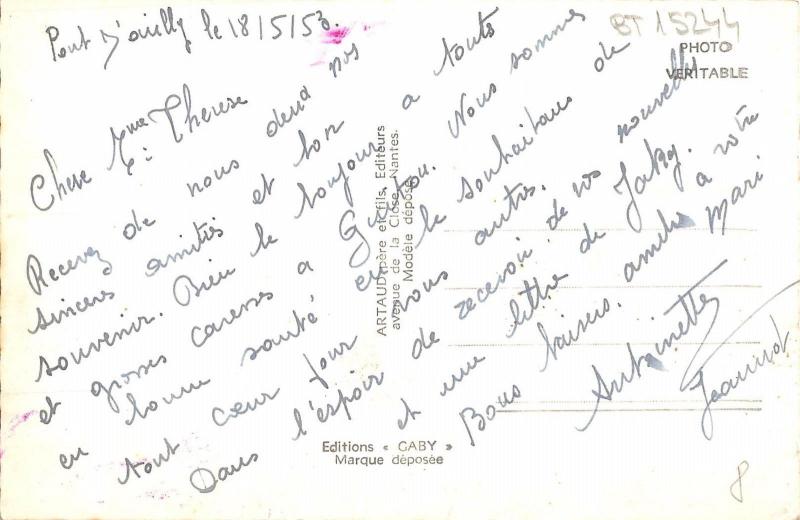 Pont D'ouilly le 18/5/53.
BT 15244
PHOTO
VERITABLE
Chere Mme Therese
Recevez de nous deux nos
sincères amitiés et bon
souvenir. Bien le toujour a touts
et grosses caresses a Guitou. Nous sommes
en bonne santé en le souhaitans de
tout cœur pour vous autres.
Dans l'espoir de recevoir de vos nouvelles
et une lettre de Jaky.
Bons baisers. amitiés a votre
Mari
Antoinette
Jeannot
ARTAUD père et fils, Editeurs
avenue de la Close, Nantes.
Modèle déposé
Editions « GABY »
Marque déposée
8